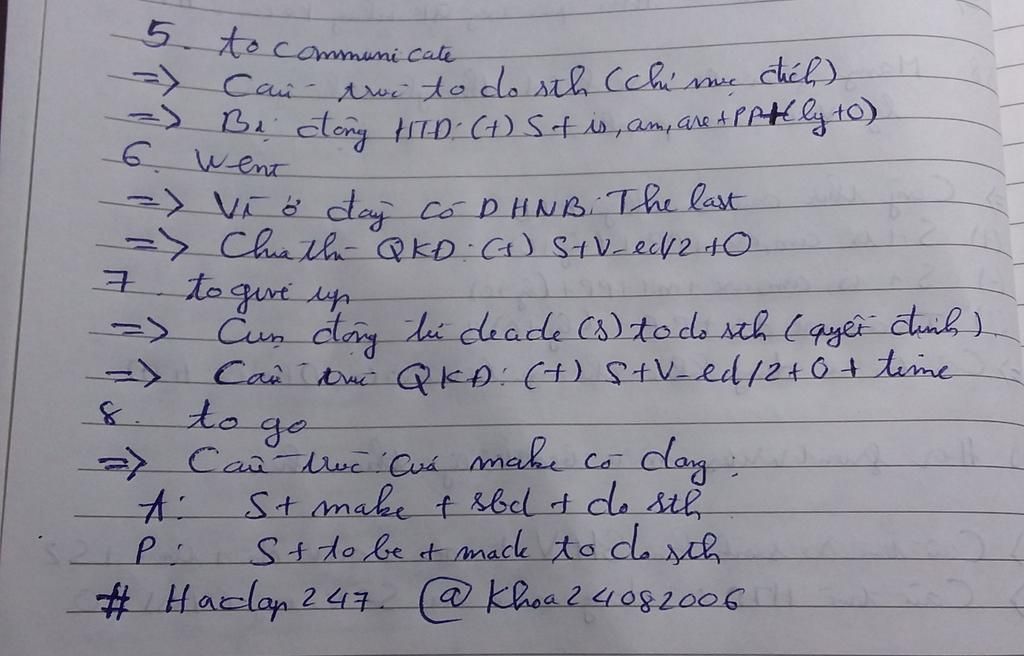 5. to communicate
=> Cấu trúc to do sth (chỉ mục đích)
=> Bị động HTD: (+) S + is, am, are + PP + (by + O)
6. Went
=> Vì ở đây có DHNB: The last
=> Chia thì QKD: (+) S + V-ed/2 + O
7. to give up
=> Cụm động từ decide (s) to do sth (quyết định)
=> Cấu trúc QKD: (+) S + V-ed/2 + O + time
8. to go
=> Cấu trúc của make có dạng:
A: S + make + sbd + do sth
P: S + to be + made to do sth
# Hadap 247. @Khoa24082006